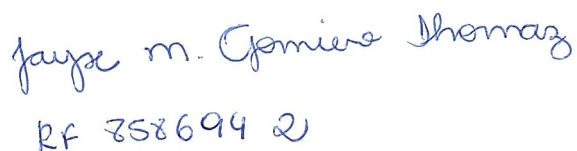 Jayse M. Gomiero Thomaz
RF 858694 2